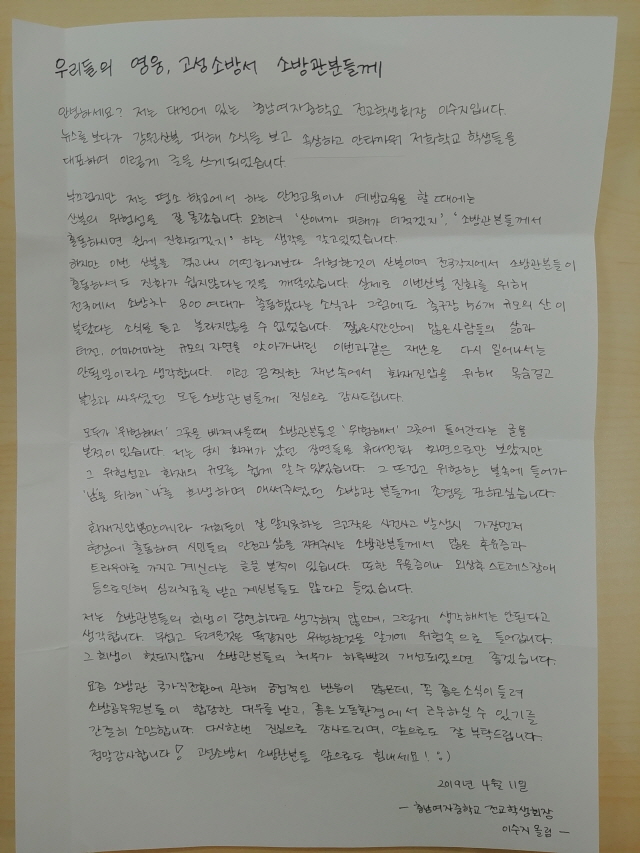 우리들의 영웅, 고성소방서 소방관분들께
안녕하세요? 저는 대전에 있는 충남여자중학교 전교학생회장 이수지입니다.
뉴스를 보다가 강원산불 피해 소식을 보고 속상하고 안타까워 저희학교 학생들을
대표하여 이렇게 글을 쓰게되었습니다.
부끄럽지만 저는 평소 학교에서 하는 안전교육이나 예방교육을 할 때에는
산불의 위험성을 잘 몰랐습니다. 오히려 '산이니까 피해가 더적겠지', '소방관분들께서
출동하시면 쉽게 진화되겠지' 하는 생각을 갖고있었습니다.
하지만 이번 산불을 겪고나니 어떤화재보다 위험한것이 산불이며 전국각지에서 소방관분들이
출동하셔도 진화가 쉽지만않다는것을 깨달았습니다. 실제로 이번산불 진화를 위해
전국에서 소방차 800여대가 출동했다는 소식과 그럼에도 축구장 756개 규모의 산이
불탔다는 소식을 듣고 놀라지않을 수 없었습니다. 짧은시간안에 많은사람들의 삶과
터전, 어마어마한 규모의 자연을 앗아가버린 이번과같은 재난은 다시 일어나서는
안될일이라고 생각합니다. 이런 끔찍한 재난속에서 화재진압을 위해 목숨걸고
불길과 싸우셨던 모든 소방관분들께 진심으로 감사드립니다.
모두가 '위험해서' 그곳을 빠져나올때 소방관분들은 '위험해서' 그곳에 들어간다는 글을
본적이 있습니다. 저는 당시 화재가 났던 장면들을 휴대전화 화면으로만 보았지만
그 위험성과 화재의 규모를 쉽게 알 수 있었습니다. 그 뜨겁고 위험한 불속에 들어가
'남'을 위해 '나'를 희생하며 애써주셨던 소방관 분들께 존경을 표하고싶습니다.
화재진압뿐만아니라 저희들이 잘 알지못하는 크고작은 사건사고 발생시 가장먼저
현장에 출동하여 시민들의 안전과삶을 지켜주시는 소방관분들께서 많은 후유증과
트라우마로 가지고 계신다는 글을 본적이 있습니다. 또한 우울증이나 외상후스트레스장애
등으로인해 심리치료를 받고 계신분들도 많다고 들었습니다.
저는 소방관분들의 희생이 당연하다고 생각하지 않으며, 그렇게 생각해서는 안된다고
생각합니다. 무섭고 두려운것은 똑같지만 위험한것을 알기에 위험속으로 들어갑니다.
그 희생이 헛되지않게 소방관분들의 처우가 하루빨리 개선되었으면 좋겠습니다.
요즘 소방관 국가직전환에 관해 긍정적인 반응이 많은데, 꼭 좋은소식이 들려
소방공무원분들이 합당한 대우를 받고, 좋은 노동환경에서 근무하실 수 있기를
간절히 소망합니다. 다시한번 진심으로 감사드리며, 앞으로도 잘 부탁드립니다.
정말감사합니다! 고성소방서 소방관분들 앞으로도 힘내세요! :)
2019년 4월 11일
- 충남여자중학교 전교학생회장
이수지 올림 -